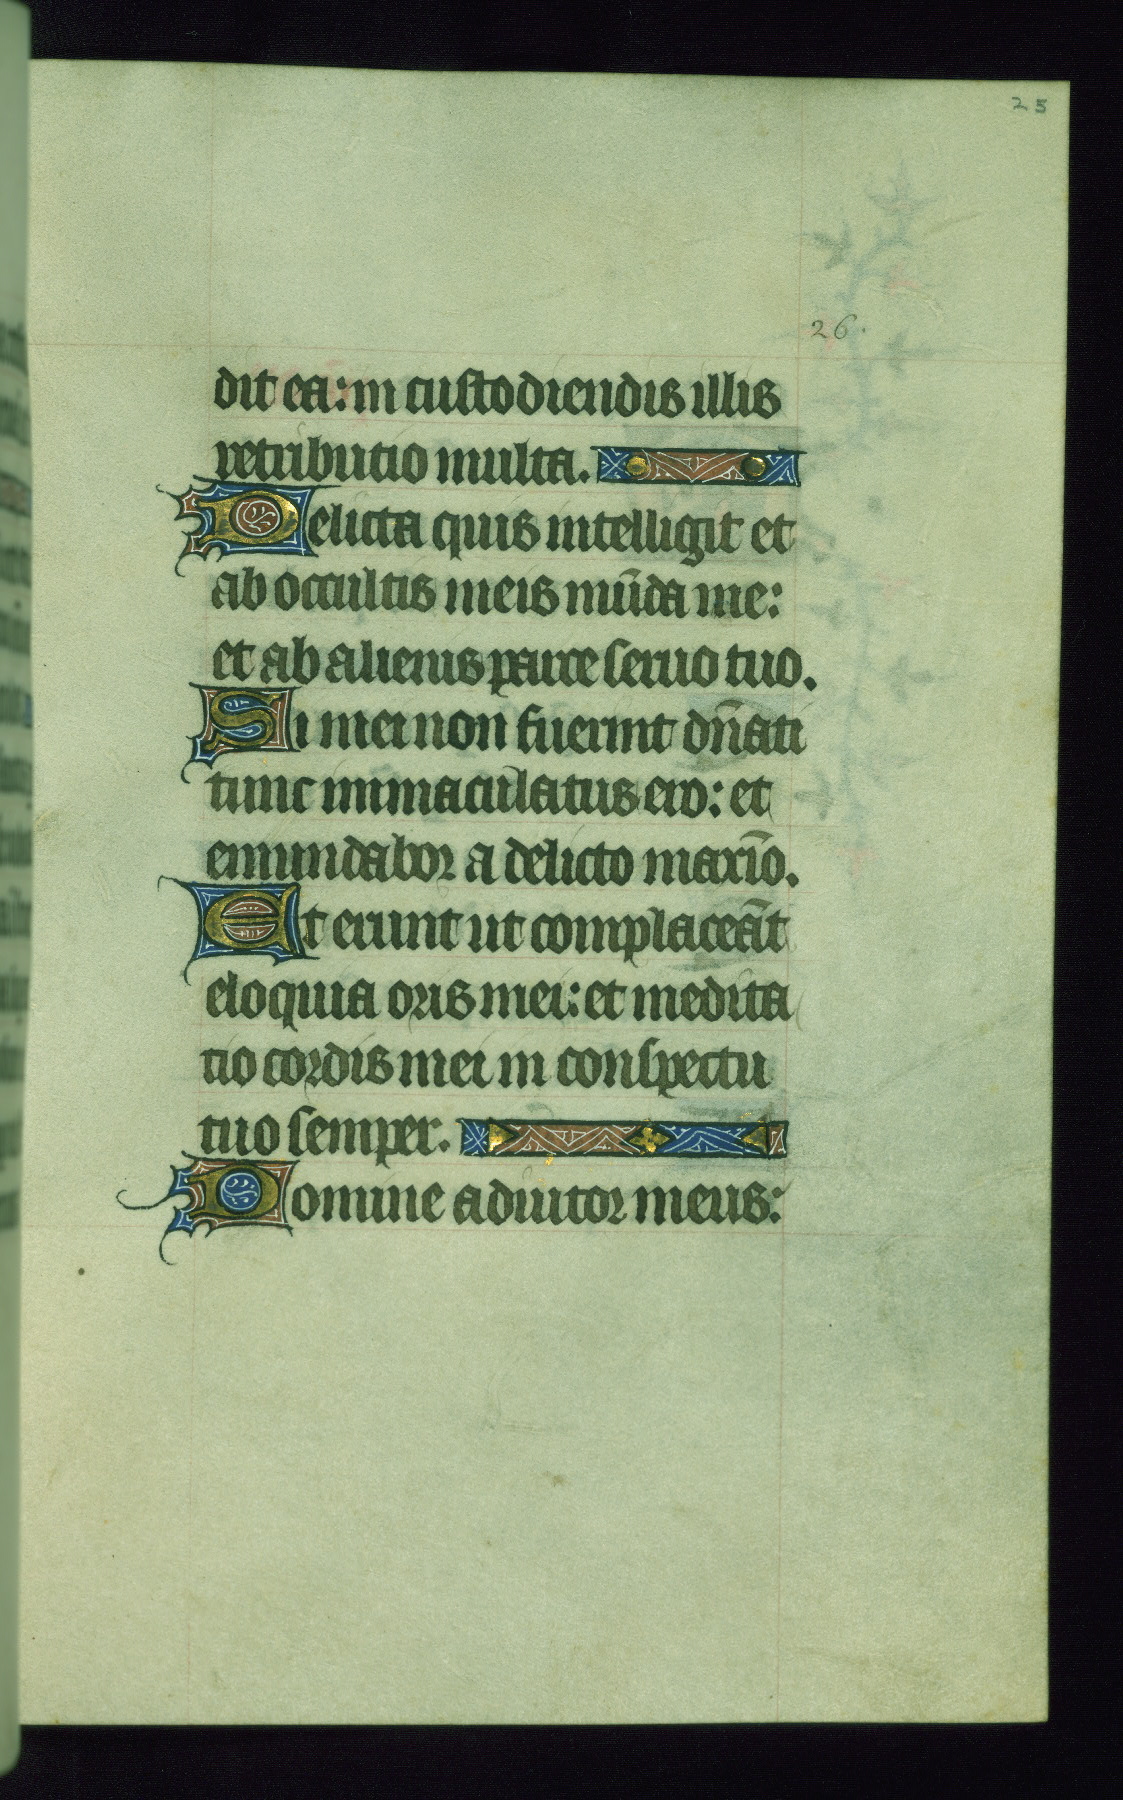 25
26.
dit ea: in custodiendis illis
retributio multa.
Delicta quis intelligit et
ab occultis meis mūda me:
et ab alienis parce seruo tuo.
Si mei non fuerint dn̄ati
tunc immaculatus ero: et
emundabor a delicto maxīo.
Et erunt ut complaceāt
eloquia oris mei: et medita
tio cordis mei in conspectu
tuo semper.
Domine adiutor meus: